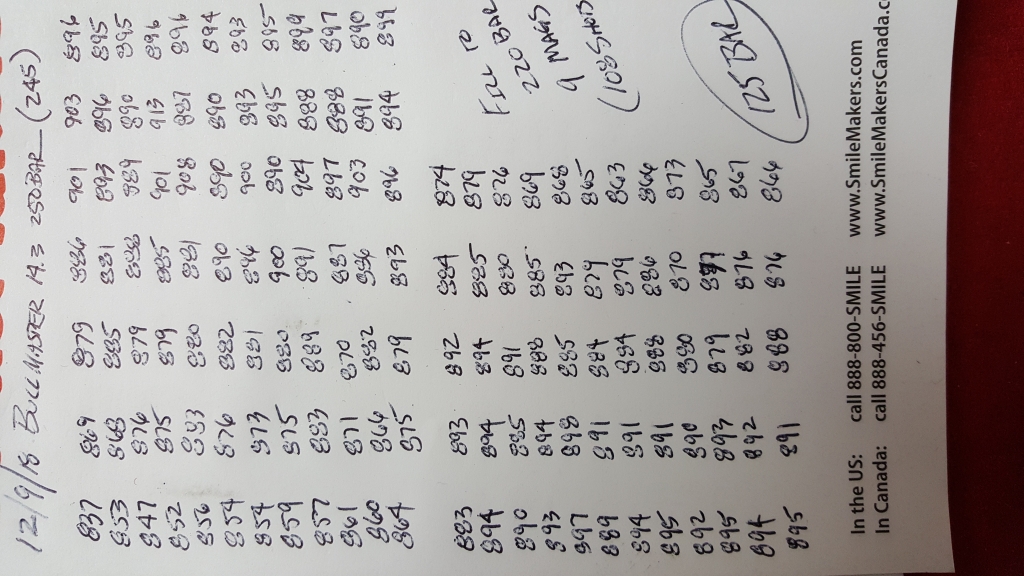 12/9/18 BULLMASTER 14.3 250BAR (245)
837 869 879 886 901 903 896
853 868 885 881 893 896 895
847 876 879 888 889 890 895
852 875 879 885 901 913 896
856 883 880 881 908 887 896
854 876 882 890 890 890 894
854 873 881 896 900 893 893
859 875 880 900 890 895 895
857 883 889 891 904 888 899
861 871 870 887 897 888 897
860 866 882 886 903 891 890
864 875 879 893 896 894 899
883 893 892 884 874
894 894 894 885 879
890 885 891 880 876
893 894 888 885 869
897 898 885 893 868
889 891 884 879 865
894 891 884 879 863
895 891 888 886 866
892 890 880 870 873
895 893 879 865
894 892 882 876 867
895 891 888 876 866
FILL TO
220 BAR
9 MAGS
(108 SHOTS)
125 BAR
In the US: call 888-800-SMILE www.SmileMakers.com
In Canada: call 888-456-SMILE www.SmileMakersCanada.c